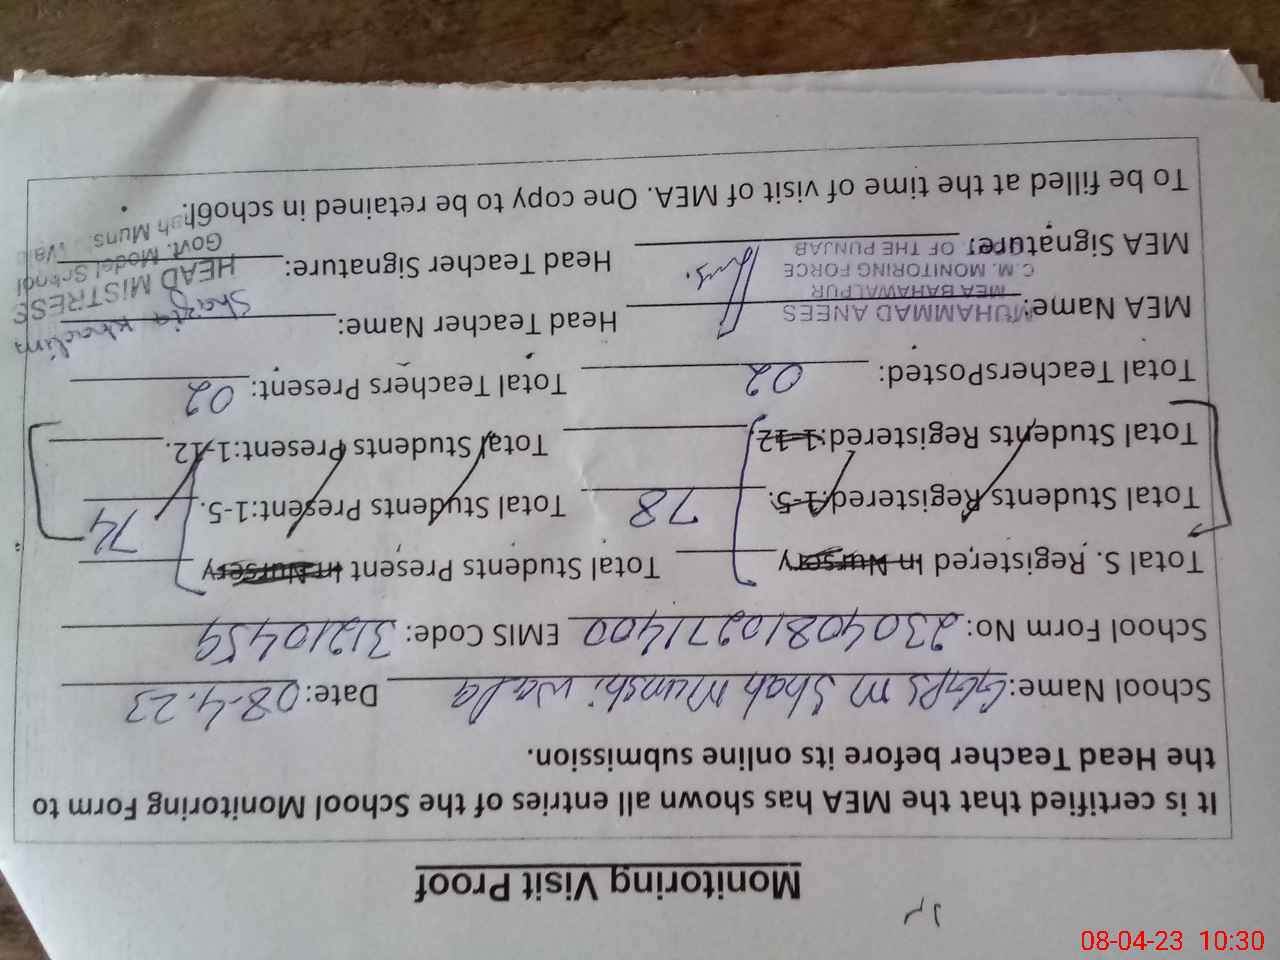 Monitoring Visit Proof
It is certified that the MEA has shown all entries of the School Monitoring Form to
the Head Teacher before its online submission.
School Name: GGPS M Shah Munshi wala Date: 08-4.23
School Form No: 230408102771400 EMIS Code: 31210459
Total S. Registered In Nursery Total Students Present In Nursery
Total Students Registered:1-5. 78 Total Students Present:1-5. 74
Total Students Registered:1-12. Total Students Present:1-12.
Total TeachersPosted: 02 Total Teachers Present: 02
MEA Name: Head Teacher Name: Shazia Khadim
MUHAMMAD ANEES
MEA BAHAWALPUR
C.M. MONITORING FORCE
OF THE PUNJAB
MEA Signature: Head Teacher Signature:
HEAD MISTRESS
Govt. Model School
To be filled at the time of visit of MEA. One copy to be retained in school.
08-04-23 10:30